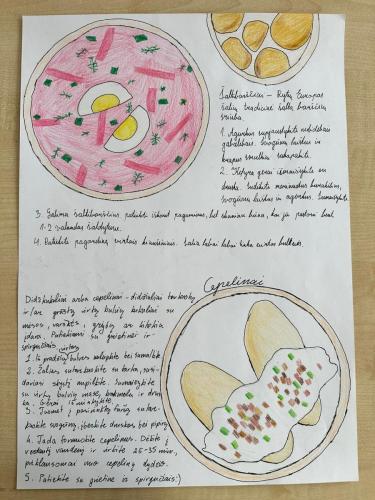 Šaltibarščiai – Rytų Europos
šalių tradicinė šalta barščių
sriuba.
1. Agurkus supjaustykite nedideliais
gabalėliais. Svogūnų laiškus ir
krapus smulkiai sukapokite.
2. Kefyrą gerai išmaišykite su
druska. Sudėkite marinuotus burokėlius,
svogūnų laiškus ir agurkus. Sumaišykite.
3. Galima šaltibarščius patiekti iškart pagaminus, bet skaniau būna, kai jie pastovi bent
1-2 valandas šaldytuve.
4. Patiekite papuoštus virtais kiaušiniais. Šalia labai labai tinka virtos bulvės.
Cepelinai
Didžkukuliai arba cepelinai – didžiuliai tarkuotų
ir/ar grūstų virtų bulvių kukuliai su
mėsos, varškės, grybų ar kitokiu
įdaru. Patiekiami su grietine ir
spirgučiais.
1. Iš pradžių virtas bulves nulupkite bei sumalkite.
2. Žalias sutarkuokite su tarka, susi-
dariusį skystį nupilkite. Sumaišykite
su virtų bulvių mase, krakmolu ir drus-
ka. Gerai išminkykite.
3. Įdarui į pasirinktą faršą sutar-
kuokite svogūną, įberkite druskos bei pipirų.
4. Tada formuokite cepelinus. Dėkite į
verdantį vandenį ir virkite 25-35 min,
priklausomai nuo cepelinų dydžio.
5. Patiekite su grietine ir spirgučiais :)